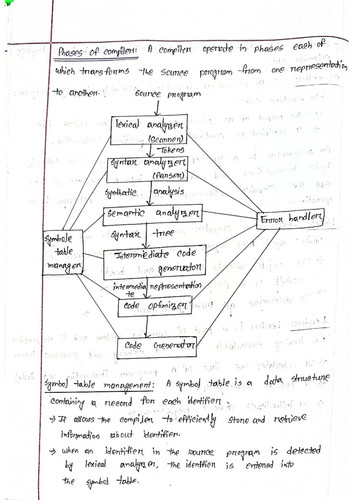 Phases of compiler: A compiler operate in phases each of
which transforms the source program from one representation
to another.
source program
lexical analyzer
(Scanner)
Tokens
Syntax analyzer
(Parser)
Synthatic analysis
Semantic analyzer
Syntax tree
Error handler
Symbole
table
manager
Intermediate code
generator
intermedia representation
te
Code optimizer
Code Generator
Symbol table management: A symbol table is a data structure
containing a record for each identifier.
→ It allows the compiler to efficiently store and retrieve
Information about identifier.
→ when an identifier in the source program is detected
by lexical analyzer, the identifier is entered into
the symbol table.